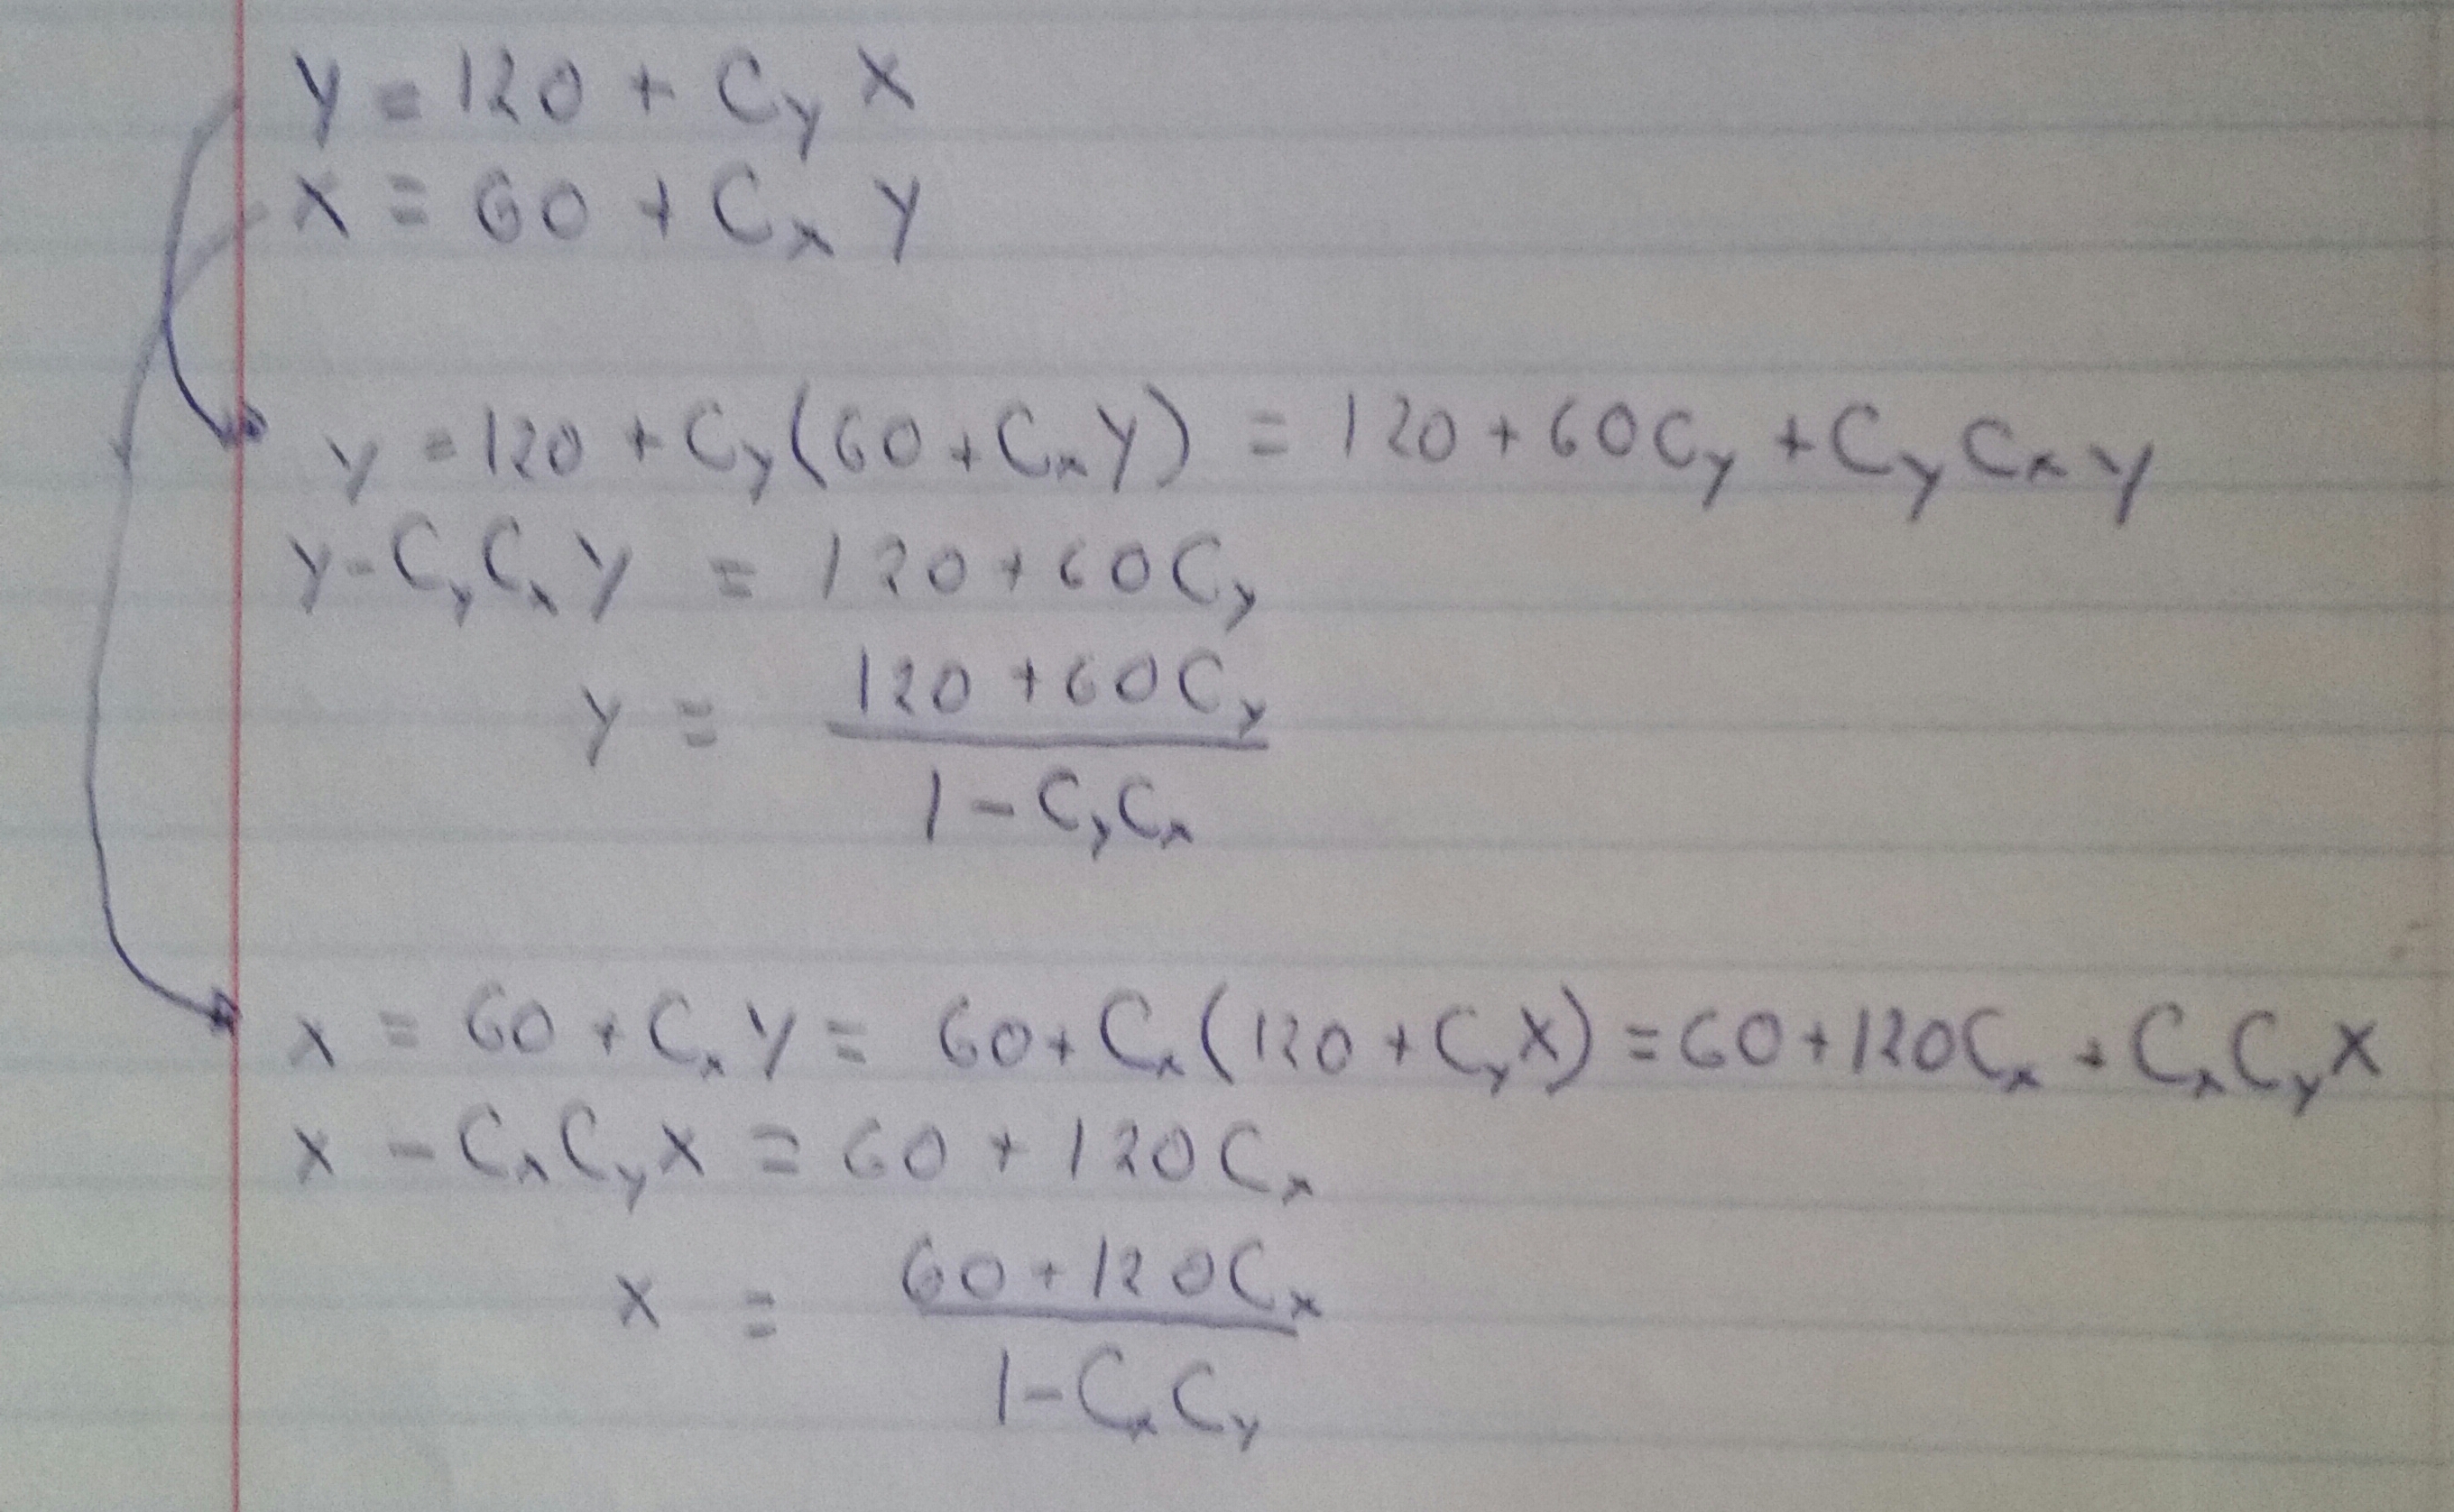 y = 120 + Cy x
x = 60 + Cx y
y = 120 + Cy(60 + Cx y) = 120 + 60Cy + Cy Cx y
y - Cy Cx y = 120 + 60Cy
y = 120 + 60Cy
1 - Cy Cx
x = 60 + Cx y = 60 + Cx(120 + Cy x) = 60 + 120Cx + Cx Cy x
x - Cx Cy x = 60 + 120Cx
x = 60 + 120Cx
1 - Cx Cy